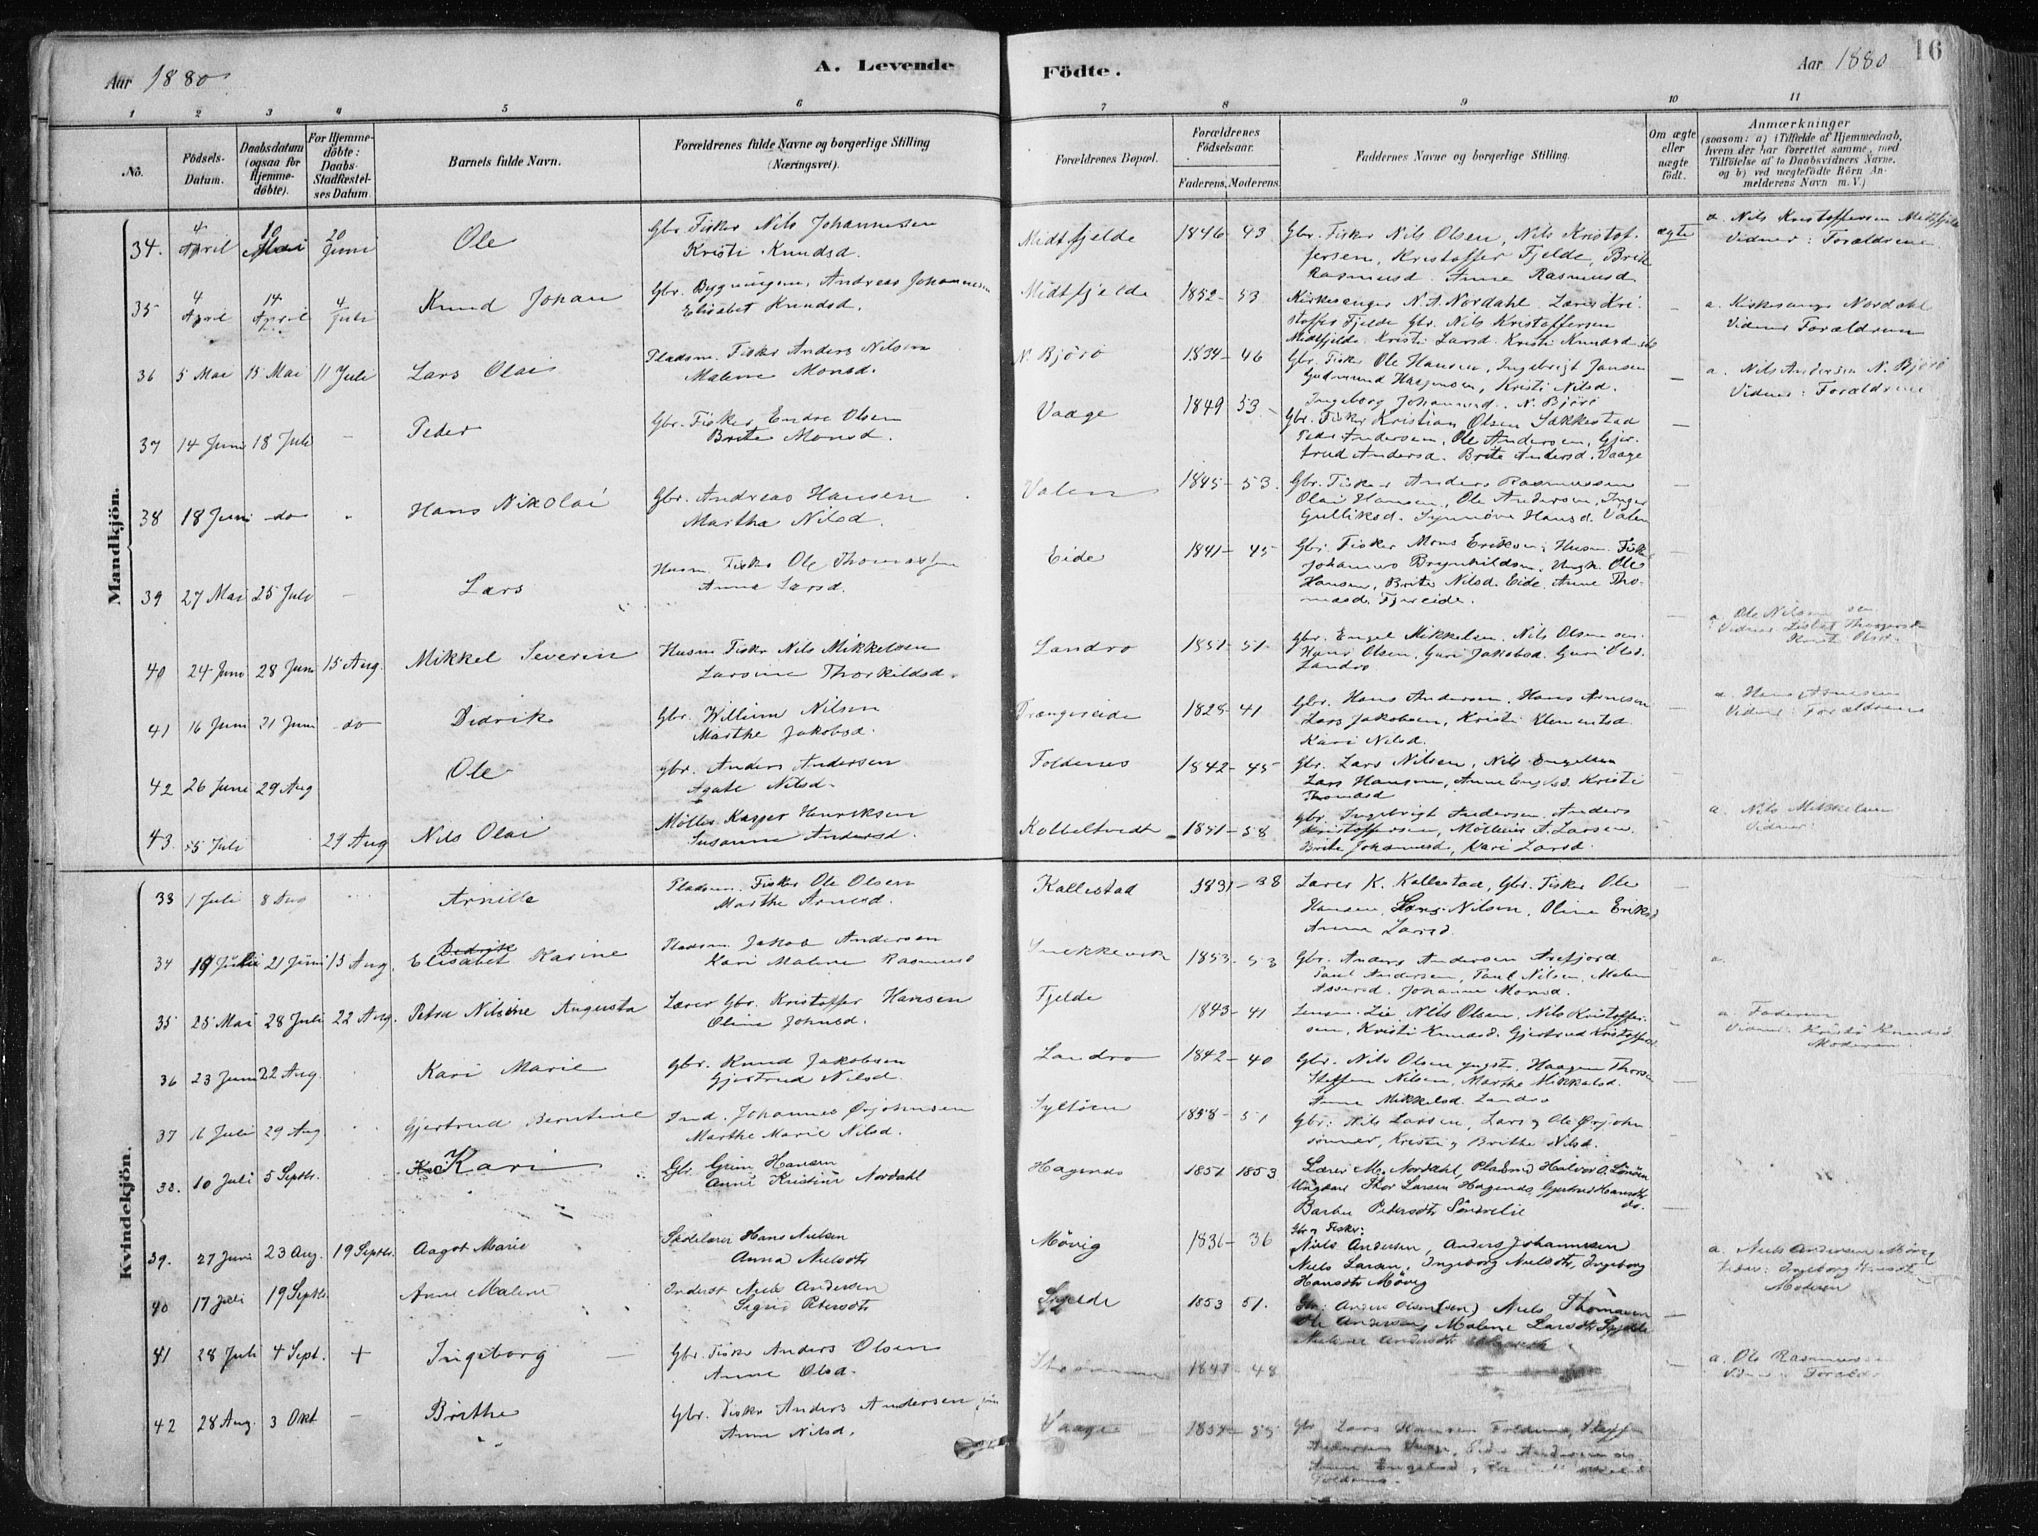 Aar 1880
A. Levende
Födte.
Aar 1880
16
1 2 3 4 5 6 7 8 9 10 11
No.
Födsels-Datum.
Daabsdatum (ogsaa for Hjemme-döbte).
For Hjemme-döbte: Daabs Stadfæstel-ses Datum
Barnets fulde Navn.
Forældrenes fulde Navne og borgerlige Stilling (Næringsvei).
Forældrenes Bopæl.
Forældrenes Födselsaar.
Faderens, Moderens.
Faddernes Navne og borgerlige Stilling.
Om ægte eller uægte födt.
Anmærkninger
(saasom: a) i Tilfælde af Hjemmedaab, hvem der har forrettet samme, med Tilföielse af to Daabsvidners Navne. og b) ved uægtefödte Börn An-melderens Navn m. V.)
Mandkjön.
34. 4 April 10 Mai 20 Juni Ole Gbr. Fisker Nils Johannesen Midtfjelde 1846-43 Gbr. Fisker Nils Olsen, Nils Kristof- ægte a. Nils Kristoffersen Midtfjelde
Kristi Knudsd. fersen, Kristoffer Fjelde, Brite Vidner: Forældrene
Rasmusd. Anne Rasmusd
35 4 April 14 April 4 Juli Knud Johan Gbr. Andreas Johannesen Midtfjelde 1852-53 Kirkesanger N. A. Nordahl Lærer Kri- - a. Kirkesanger Nordahl
Elisabet Knudsd. stoffer Fjelde Gbr. Nils Kristoffersen Vidner Forældrene
Midtfjelde. Kristi Larsd. Kristi Knudsd
36 5 Mai 15 Mai 11 Juli Lars Olai Pladsm. Fisker Anders Nilsen N. Björö 1834-46 Gbr. Fisker Ole Hansen, Ingebrigt Jansen - a. Nils Andersen N. Björö
Malene Monsd. Gudmund Haagensen, Kristi Nilsd. Vidner: Forældrene
Ingeborg Johannesd. N. Björö
37 14 Juni 18 Juli - Peder Gbr. Fisker Endre Olsen Vaage 1849-53 Gbr. Fisker Kristian Olsen Sækkestad -
Brite Monsd. Peder Andersen, Ole Andersen, Gjer-
trud Andersd. Brite Andersd. Vaage
38 18 Juni do - Hans Nikolai Gbr. Andreas Hansen Valen 1845-53. Gbr. Fisker Anders Rasmussen -
Martha Nilsd. Olai Hansen, Ole Andersen, Inger
Gulliksd. Synnöve Hansd. Valen
39 27 Mai 25 Juli - Lars Husm. Fisker Ole Thomassen Eide 1841-45 Gbr. Fisker Mons Eriksen, Husm. Fisker -
Anna Larsd. Johannes Brynhildsen, Ungk. Ole
Hansen, Brite Nilsd. Eide. Anne Tho-
masd. Fjæreide.
40 24 Juni 28 Juni 15 Aug. Mikkel Severin Husm Fisker Nils Mikkelsen Landro 1851-51 Gbr. Engel Mikkelsen, Nils Olsen sen. - a. Ole Nilsen sen.
Larsine Thorkildsd. Hans Olsen, Guri Jakobsd. Guri Olsd.
Landro
41 16 Juni 21 Juni do Didrik Gbr. Willium Nilsen Trængereide 1828-41 Gbr. Hans Andersen, Hans Arnesen - a. Hans Arnesen
Marthe Jakobsd. Lars Jakobsen, Kristi Klementsd. Vidner: Forældrene
Kari Nilsd.
42 26 Juni 29 Aug Ole Gbr. Anders Andersen Foldenes 1842-45 Gbr. Lars Nilsen, Nils Engelsen -
Agate Nilsd. Lars Hansen, Anne Engelsd. Kristi
Thomasd
43. 5 Juli 29 Aug Nils Olai Möller Kasper Henriksen Kobbeltvedt 1851-58 Gbr. Ingebrigt Andersen, Anders a. Nils Mikkelsen
Susanne Andersd. Kristoffersen, Möller A. Larsen Vidner:
Brite Johannesd, Kari Larsd.
Kvindekjön.
33 1 Juli 8 Aug Arnille Pladsm. Fisker Ole Olsen Kallestad 1831-38 Lærer K. Kallestad, Gbr. Fisker Ole -
Marthe Arnesd. Hansen, Lars Nilsen, Oline Eriksd
Anna Larsd.
34 19 Juni 21 Juni 15 Aug. Didrik Elisabet Karine Pladsm. Jakob Andersen Snekkevik 1853-53 Gbr. Anders Andersen Arefjord a.
Kari Malene Rasmusd Paul Andersen, Paul Nilsen, Malene
Johanne Monsd.
35 25 Mai 28 Juli 22 Aug. Petra Nilsine Augusta Lærer Gbr. Kristoffer Hansen Fjelde 1843-41 Lie Nils Olsen, Nils Kristoffer- a. Faderen
Oline Johnsd. sen, Kristi Knudsd. Gjertrud Kristoffersd Vidner: Kristi Knudsd
Moderen
36 23 Juni 22 Aug. Kari Marie Gbr. Knud Jakobsen Landro 1842-40 Gbr. Nils Olsen yngste, Haagen Thorsen -
Gjertrud Nilsd. Steffen Nilsen, Marthe Mikkelsd.
Anne Mikkelsd. Landro
37 16 Juli 29 Aug. Gjertrud Berntine Ind. Johannes Örjohnsen Syltöen 1858-51 Gbr: Nils Larsen, Lars og Ole Örjohn
Marthe Marie Nilsd. sönner, Kristi og Brithe Nilsd.
38. 10 Juli 5 Septb. Kari Gbr. Grim Hansen Hagenæs 1851 1853 Lærer M. Nordahl, Pladsmd Halvor O.
Anne Kristine Nordahl Ungkarl Thor Larsen Hagenæs, Gjertrud Hansdtr
Barbra Pedersdtr
39. 27 Juni 23 Aug. 19 Septb. Aagot Marie Skolelærer Hans Nielsen Mövig 1836-36 Gbr. og Fisker: a. Niels Andersen Mövig
Anna Nielsdtr Niels Andersen, Anders Johannesen Vidner: Ingeborg Hansdtr
Niels Larsen, Ingeborg Nielsdtr, Ingeborg Moderen
Hansdtr Mövig
40 17 Juli 19 Septb. Anne Malene Inderst Niels Andersen Spjelde 1853 51. Gbr: Anders Olsen (sen) Niels Thomassen -
Sigrid Petersdtr Ole Andersen, Malene Larsdtr Spjelde
41 28 Juli 4 Sept. + Ingeborg - Gbr. Fisker Anders Olsen 1847-48 - a. Ole Rasmussen
Anne Olsd. Vidner: Forældr
42 28 Aug. 3 Okt - Birthe Gbr. Fisker Anders Andersen jun Vaage 1854-55 Gbr. Lars Hansen Foldenes, Steffen
Anne Nilsd. Foldenes.